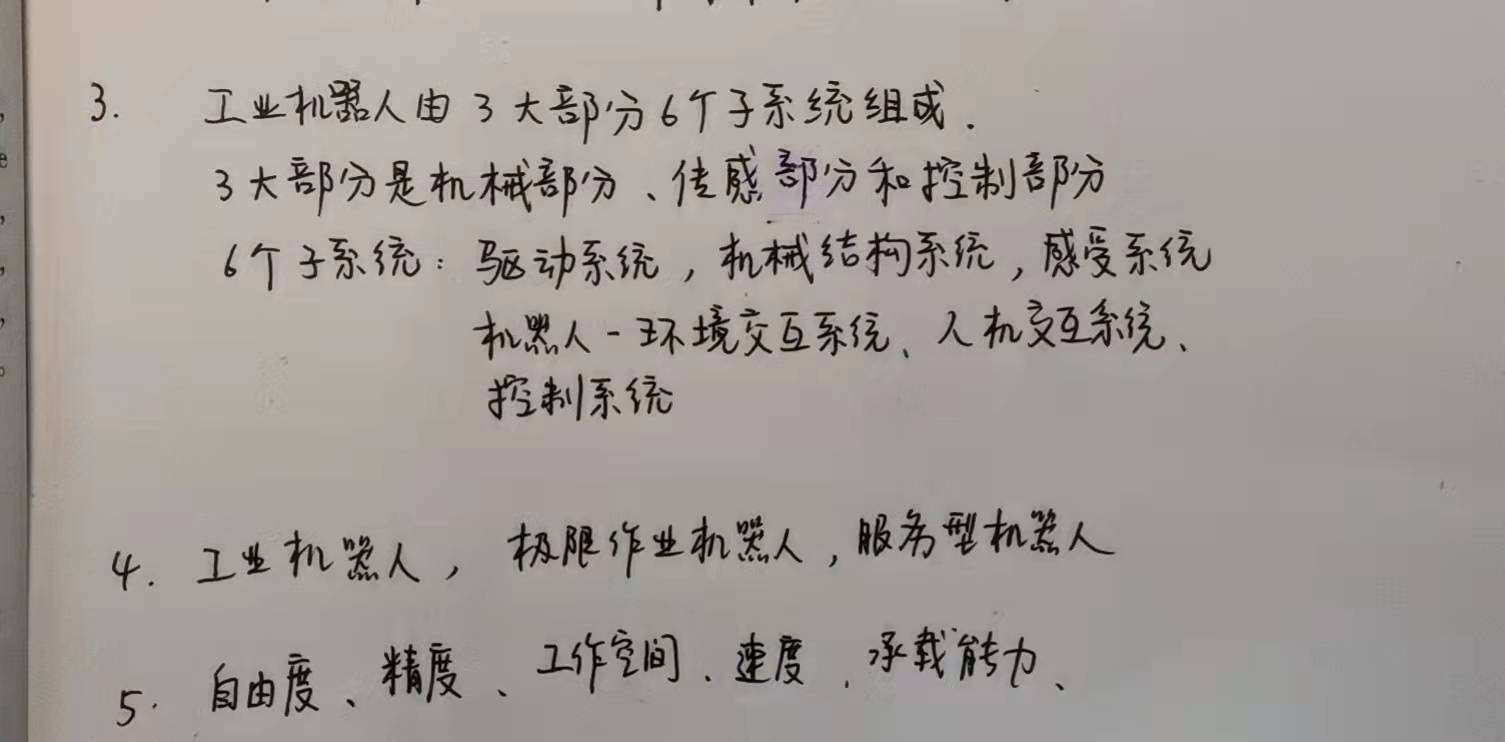 3. 工业机器人由3大部分6个子系统组成.
3大部分是机械部分、传感部分和控制部分
6个子系统：驱动系统，机械结构系统，感受系统
机器人-环境交互系统、人机交互系统、
控制系统
4. 工业机器人，极限作业机器人，服务型机器人
5. 自由度、精度、工作空间、速度、承载能力、